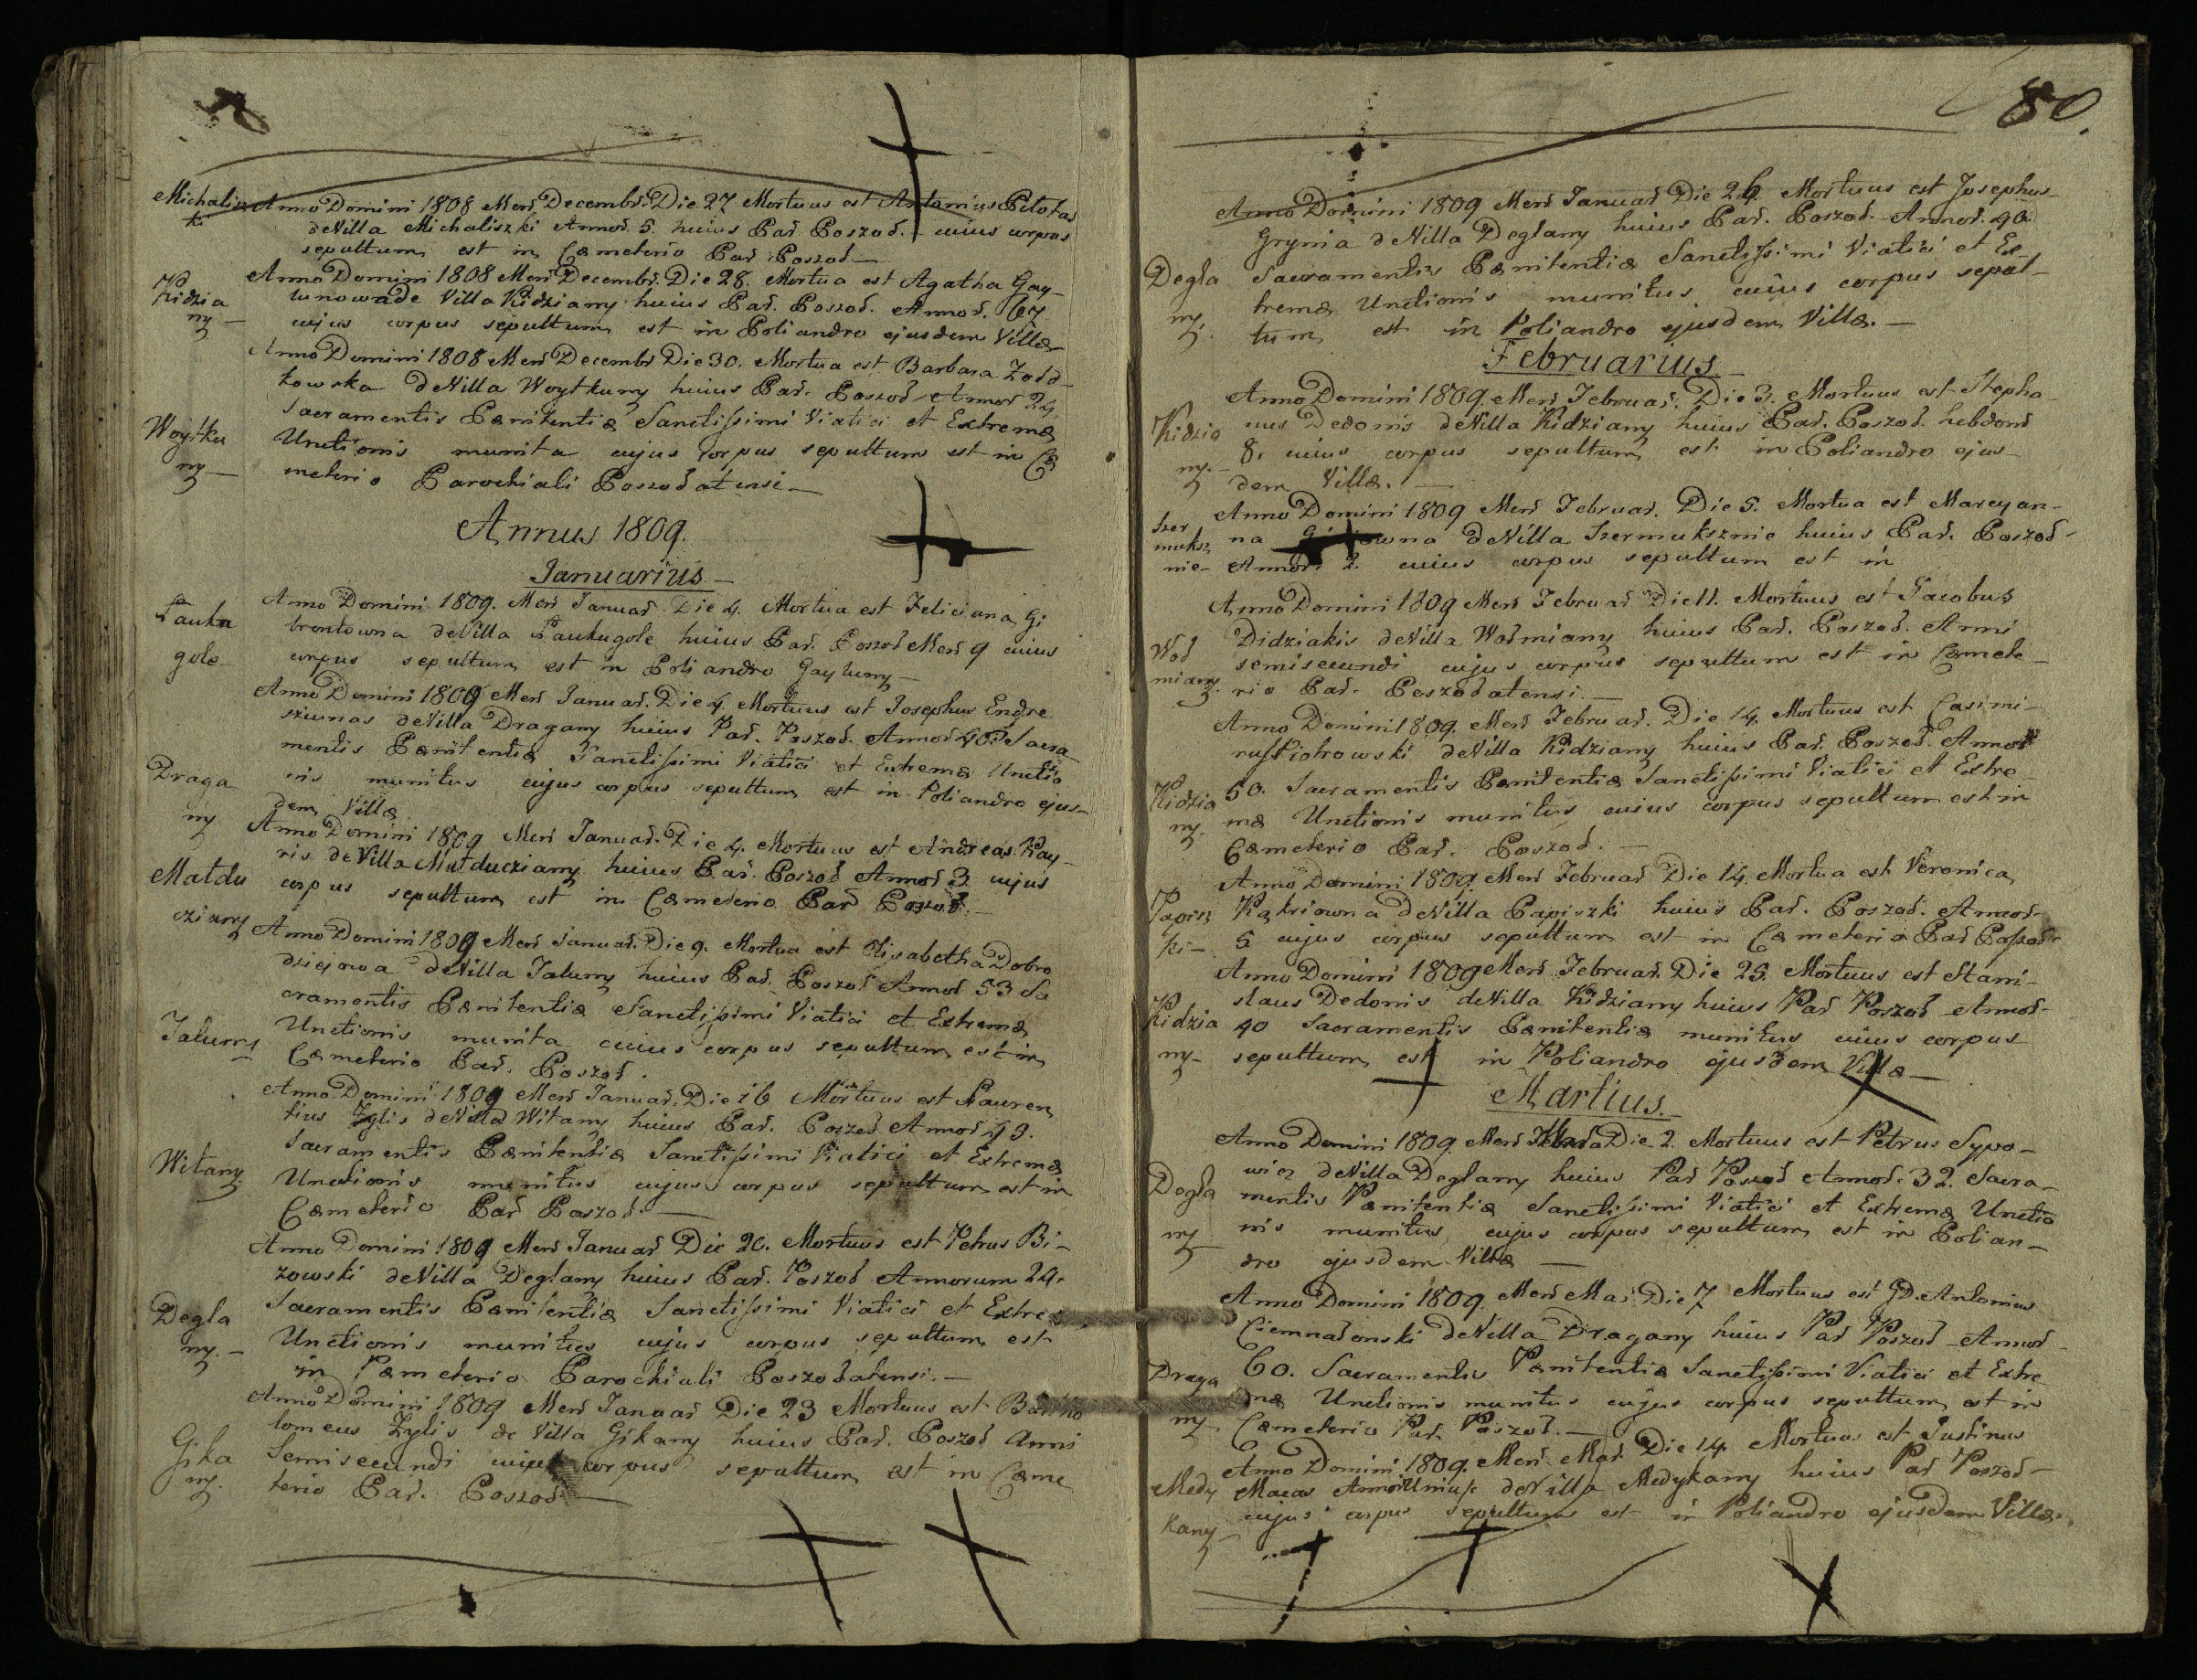 Michalisz
ki
Anno Domini 1808 Mens Decembr. Die 27 Mortuus est Antonius Petoras
de Villa Michaliszki Annor. 5. huius Par. Poszod. cuius corpus
sepultum est in Cæmeterio Par. Poszod
Kidzia
ny
Anno Domini 1808 Mens Decembr. Die 28. Mortua est Agatha Gay-
lunowa de Villa Kidziany huius Par. Poszod. Annor. 67
cujus corpus sepultum est in Poliandro ejusdem Villæ
Woytku
ny
Anno Domini 1808 Mens Decembr Die 30. Mortua est Barbara
kowska de Villa Woytkuny huius Par. Poszod Annor 24
Sacramentis Pænitentiæ Sanctissimi Viatici et Extremæ
Unctionis munita cujus corpus sepultum est in Cæ
meterio Parochiali Poszodatensi
Annus 1809.
Januarius
Lauku
gole
Anno Domini 1809. Mens Januar. Die 4. Mortua est Feliciana Gi
brontowna de Villa Laukugole huius Par. Poszod Mens 9 cuius
corpus sepultum est in Poliandro Gayluny
Draga
ny
Anno Domini 1809 Mens Januar. Die 4. Mortuus est Josephus Endre
sziunas de Villa Dragany huius Par. Poszod. Annor 40. Sacra
mentis Pænitentiæ Sanctissimi Viatici et Extremæ Unctio
nis munitus cujus corpus sepultum est in Poliandro ejus-
dem Villæ
Matdu
cziany
Anno Domini 1809 Mens Januar. Die 4. Mortuus est Andreas Kay-
ris de Villa Matducziany huius Par. Poszod Annor 3 cujus
corpus sepultum est in Cæmeterio Par Poszod.
Jaluny
Anno Domini 1809 Mens Januar. Die 9. Mortua est Elisabetha Dobro
dziejowa de Villa Jaluny huius Par. Poszod Annor 53 Sa
cramentis Pænitentiæ Sanctissimi Viatici et Extremæ
Unctionis munita cuius corpus sepultum est in
Cæmeterio Par. Poszod.
Witany
Anno Domini 1809 Mens Januar. Die 16 Mortuus est Lauren
tius Zylis de Villa Witany huius Par. Poszod. Annor 49.
Sacramentis Pænitentiæ Sanctissimi Viatici et Extremæ
Unctionis munitus cujus corpus sepultum est in
Cæmeterio Par Poszod.
Degla
ny.
Anno Domini 1809 Mens Januar Die 20. Mortuus est Petrus Bi-
zowski de Villa Deglany huius Par. Poszod Annorum 24.
Sacramentis Pænitentiæ Sanctissimi Viatici et Extre
Unctionis munitus cujus corpus sepultum est
in Cæmeterio Parochiali Poszodatensi.
Gika
ny.
Anno Domini 1809 Mens Januar Die 23 Mortuus est Bartho
lomeus Zylis de Villa Gikany huius Par. Poszod Anni
Semisecundi cujus corpus sepultum est in Cæme
terio Par. Poszod
80.
Degla
ny.
Anno Domini 1809 Mens Januar Die 26. Mortuus est Josephus
Grynia de Villa Deglany huius Par. Poszod. Annor. 40.
Sacramentis Pænitentiæ Sanctissimi Viatici et Ex-
tremæ Unctionis munitus cuius corpus sepul-
tum est in Poliandro ejusdem Villæ.
Februarius
Kidzia
ny.
Anno Domini 1809. Mens Februar. Die 3. Mortuus est Stepha
nus Dedonis de Villa Kidziany huius Par. Poszod. hebdom
8. cuius corpus sepultum est in Poliandro ejus-
dem Villæ.
Szer
muksz
nie
Anno Domini 1809 Mens Februar. Die 5. Mortua est Marcyan-
na de Villa Szermuksznie huius Par. Poszod-
Annor. 2. cuius corpus sepultum est in
Wod
miany.
Anno Domini 1809 Mens Februar Die 11. Mortuus est Jacobus
Didziakis de Villa Wodmiany huius Par. Poszod. Anni
semisecundi cujus corpus sepultum est in Cæmete-
rio Par. Poszodatensi.
Kidzia
ny.
Anno Domini 1809. Mens Februar. Die 14. Mortuus est Casimi-
rus Piotrowski de Villa Kidziany huius Par. Poszod. Annor
50. Sacramentis Pænitentiæ Sanctissimi Viatici et Extre
mæ Unctionis munitus cuius corpus sepultum est in
Cæmeterio Par. Poszod.
Papisz
ki
Anno Domini 1809. Mens Februar Die 14. Mortua est Veronica
Kąkriowna de Villa Papiszki huius Par. Poszod. Annor-
5 cujus corpus sepultum est in Cæmeterio Par Poszod
Kidzia
ny
Anno Domini 1809 Mens Februar. Die 25. Mortuus est Stani-
slaus Dedonis de Villa Kidziany huius Par Poszod Annor-
40 Sacramentis Pænitentiæ munitus cuius corpus
sepultum est in Poliandro ejusdem Villæ
Martius.
Degla
ny
Anno Domini 1809. Mens Mar Die 2. Mortuus est Petrus Sypo-
wicz de Villa Deglany huius Par Poszod Annor. 32. Sacra-
mentis Pænitentiæ Sanctissimi Viatici et Extremæ Unctio
nis munitus cujus corpus sepultum est in Polian-
dro ejusdem Villæ
Draga
ny.
Anno Domini 1809. Mens Mar Die 7 Mortuus est GD. Antonius
Ciemnadonski de Villa Dragany huius Par Poszod Annor
60. Sacramentis Pænitentiæ Sanctissimi Viatici et Extre
mæ Unctionis munitus cujus corpus sepultum est in
Cæmeterio Par. Poszod.
Medy
kany
Anno Domini 1809. Mens Mar. Die 14. Mortuus est Justinus
Macas Anni Unius de Villa Medykany huius Par Poszod-
cujus corpus sepultum est in Poliandro ejusdem Villæ.